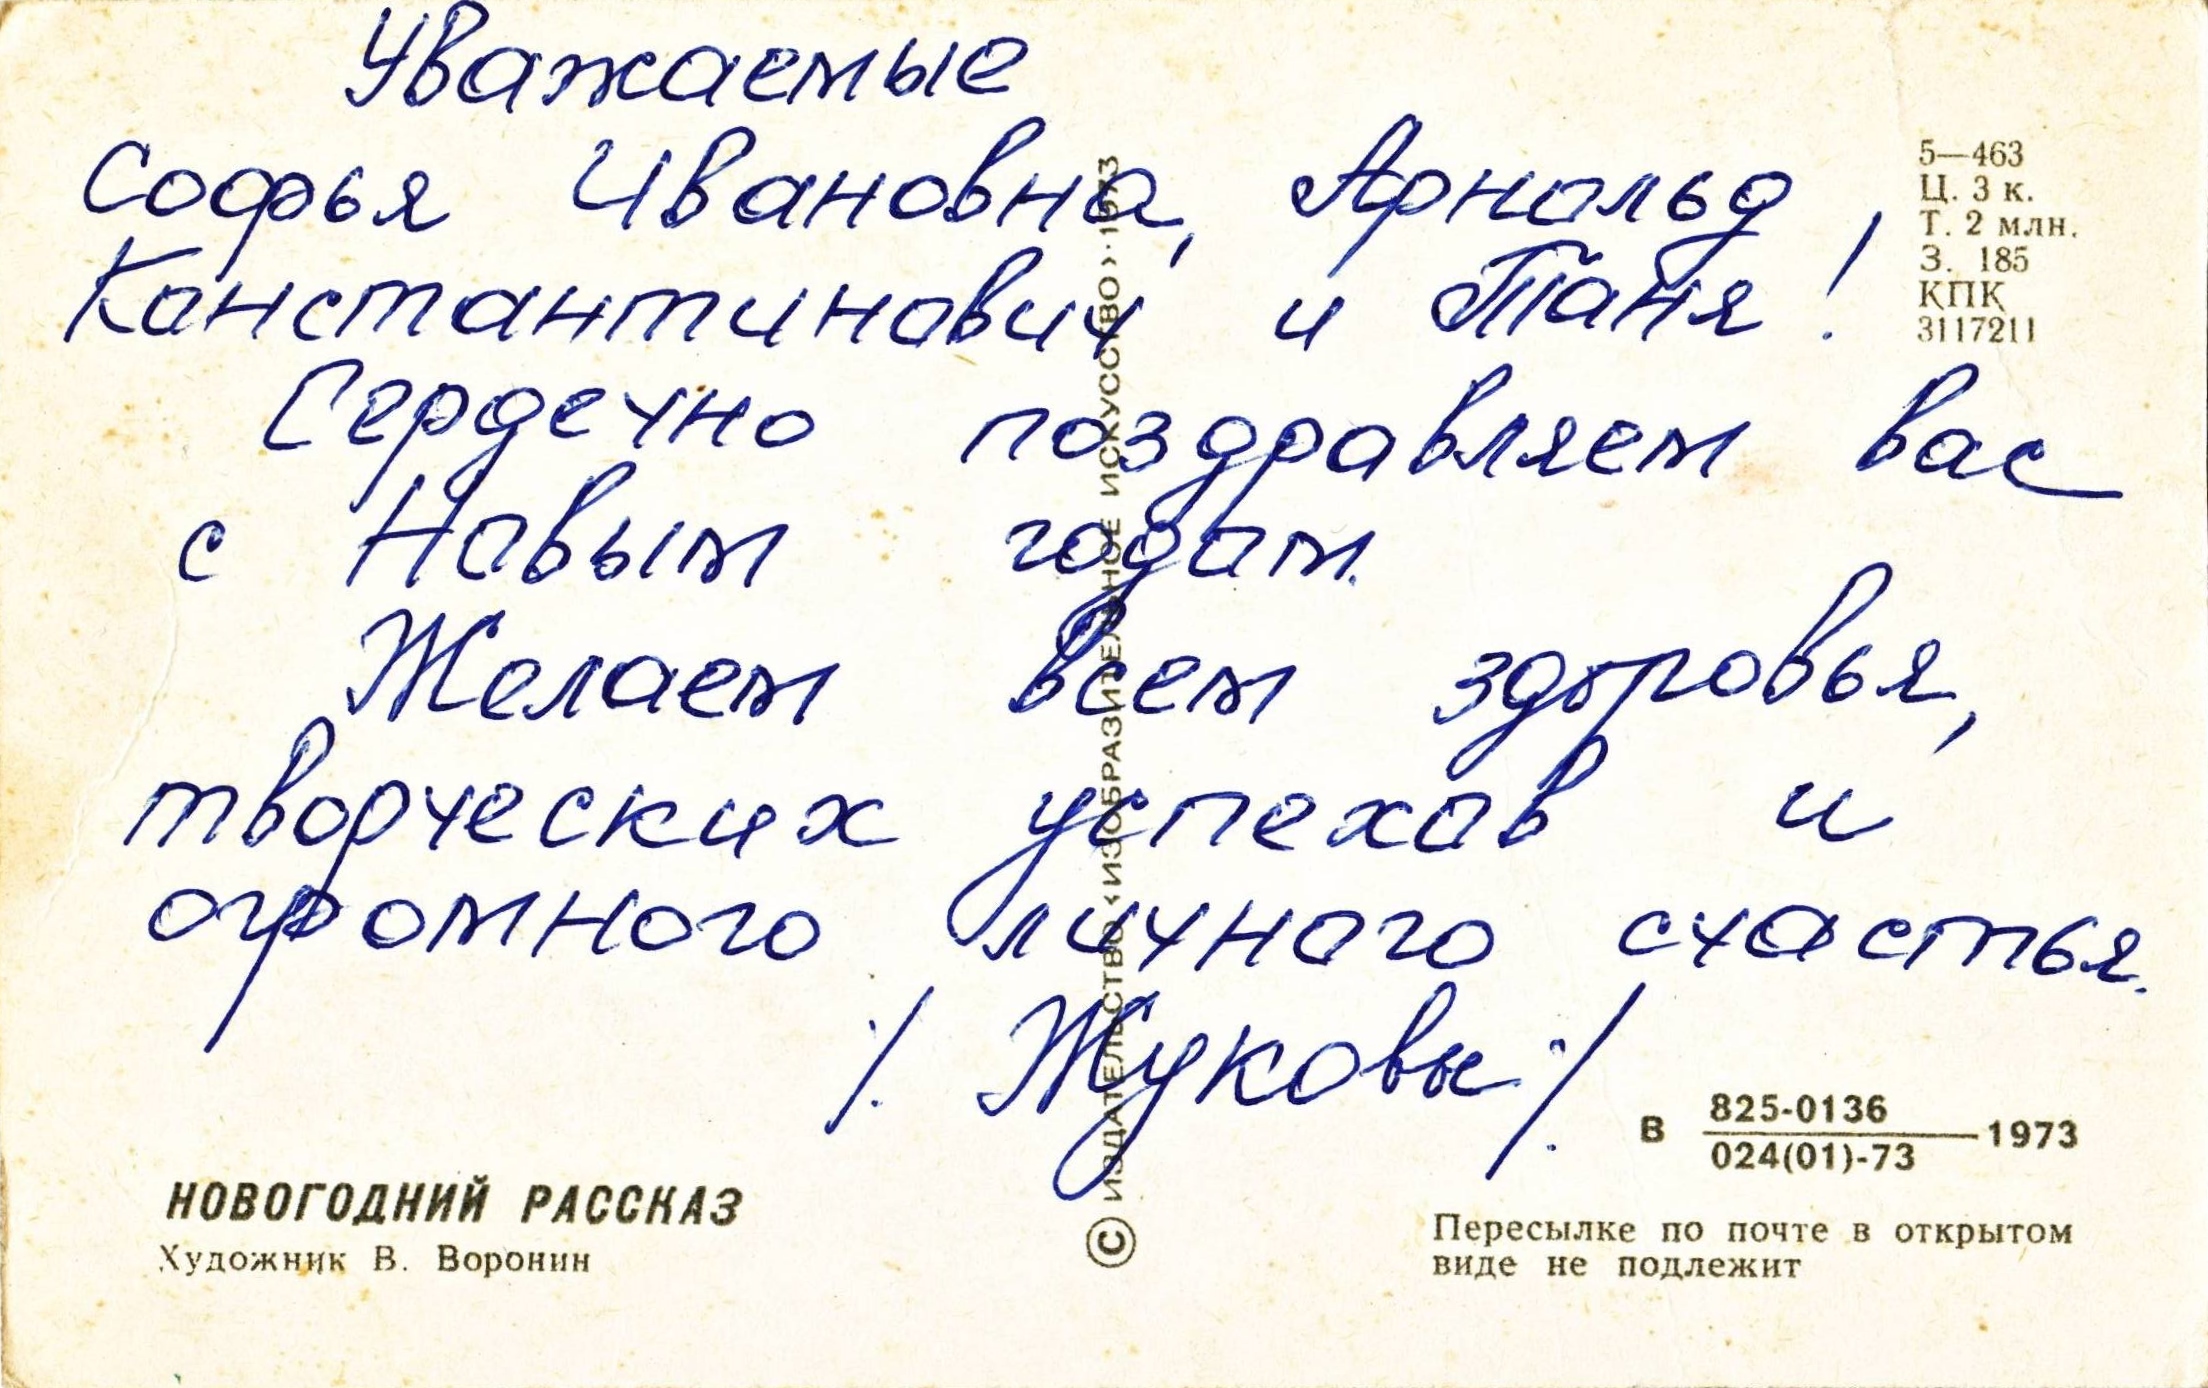 Уважаемые
Софья Ивановна, Арнольд
Константинович и Таня!
Сердечно поздравляем вас
с Новым годом.
Желаем всем здоровья,
творческих успехов и
огромного личного счастья.
/. Жуковы ./.
5—463
Ц. 3 к.
Т. 2 млн.
З. 185
КПК
3117211
© ИЗДАТЕЛЬСТВО «ИЗОБРАЗИТЕЛЬНОЕ ИСКУССТВО» · 1973
В 825-0136
024(01)-73 1973
НОВОГОДНИЙ РАССКАЗ
Художник В. Воронин
Пересылке по почте в открытом
виде не подлежит